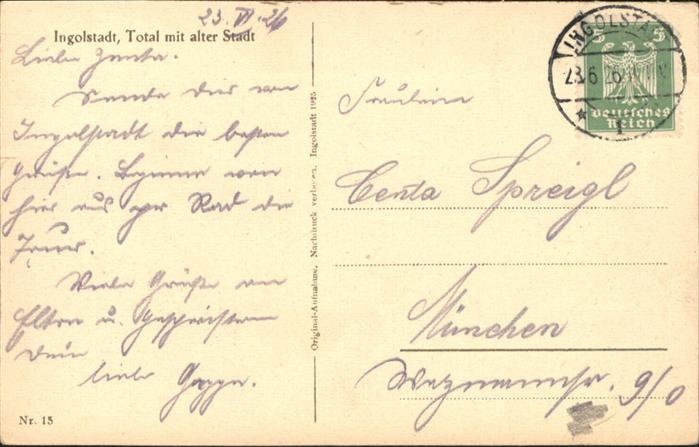 23. VI. 26
Ingolstadt, Total mit alter Stadt
Liebe Zenta.
Sende dir von
Ingolstadt die besten
Grüße. Beginne von
hier aus per Rad die
Tour.
Viele Grüße an
Eltern u. Geschwistern
dein
lieber
Nr. 15
Original-Aufnahme. Nachdruck verboten. Ingolstadt 1925
INGOLSTADT
23.6.26
1
5 5
Deutsches
Reich
Fräulein
Centa Spreigl
München
Wazmannstr. 9/0